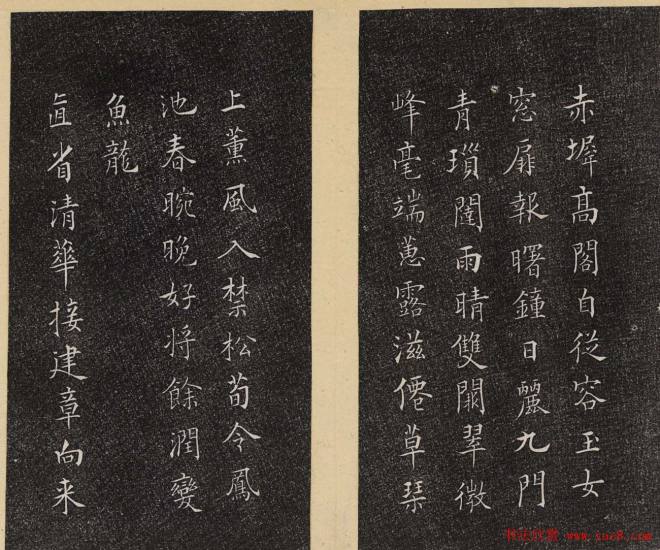 赤墀高閣自從容玉女
窓扉報曙鐘日麗九門
青瑣闥雨晴雙闕翠微
峰毫端蕙露滋僊草琴
上薰風入禁松荀令鳳
池春晼晚好将餘潤變
魚龍
直省清華接建章向来